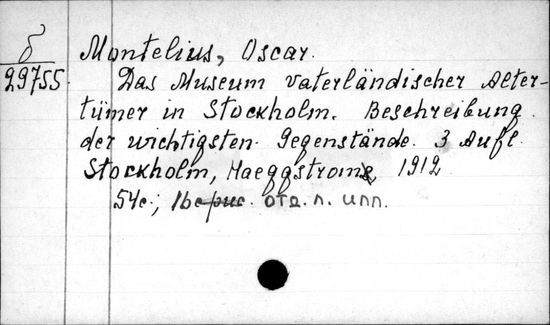 δ
29755
Montelius, Oscar.
Das Museum vaterländischer Alter-
tümer in Stockholm. Beschreibung
der wichtigsten Gegenstände. 3 Aufl.
Stockholm, Haeggstrom, 1912
54c.; отд. л. илл.